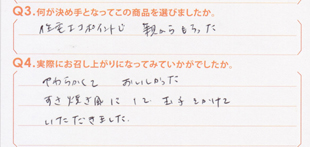 Q3.何が決め手となってこの商品を選びましたか。
住宅エコポイントで 親からもらった
Q4.実際にお召し上がりになってみていかがでしたか。
やわらかくて おいしかった
すき焼き風にして 玉子とかけて
いただきました。